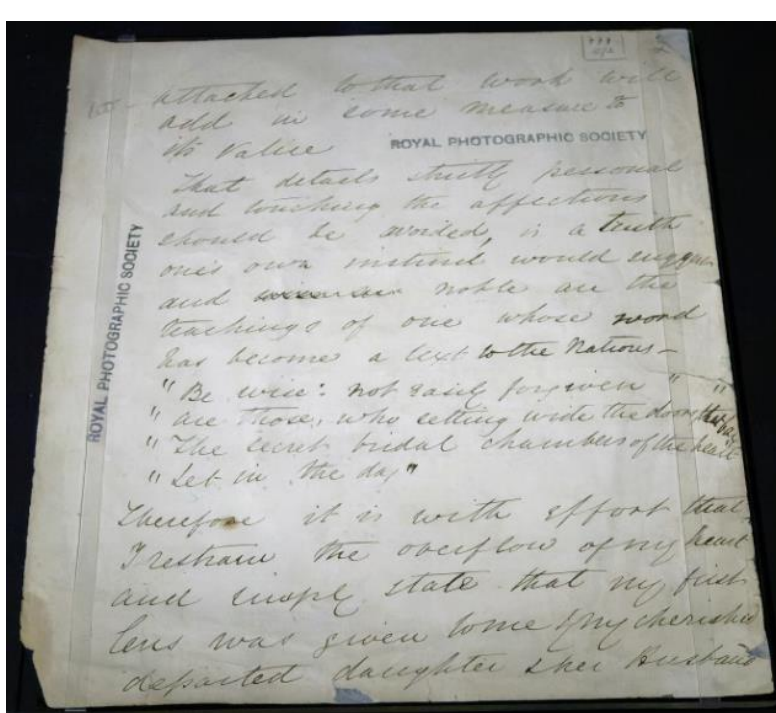 attached to that work will
add in some measure to
its value
ROYAL PHOTOGRAPHIC SOCIETY
That details strictly personal
and touching the affections
should be avoided, is a truth
one's own instinct would suggest
and noble are the
teachings of one whose word
has become a text to the Nations –
"Be wise: not easily forgiven"
"are those, who setting wide the doors that bar
"The secret bridal chambers of the heart
"Let in the day"
Therefore it is with effort that
I restrain the overflow of my heart
and simply state that my first
lens was given to me by my cherished
departed daughter & her Husband
ROYAL PHOTOGRAPHIC SOCIETY